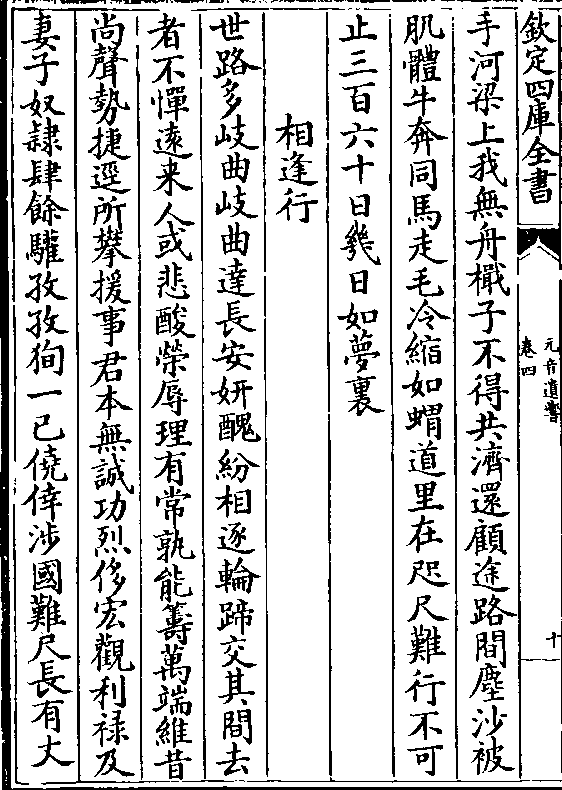 欽定四庫全書
元音遺響
卷四
十
手河梁上我無舟檝子不得共濟還顧途路間塵沙被
肌體牛奔同馬走毛冷縮如蝟道里在咫尺難行不可
止三百六十日幾日如夢裏
相逢行
世路多岐曲岐曲達長安妍醜紛相逐輪蹄交其間去
者不憚遠来人或悲酸榮辱理有常孰能籌萬端維昔
尚聲勢捷逕所攀援事君本無誠功烈侈宏觀利祿及
妻子奴隷肆餘驩孜孜狥一已僥倖涉國難尺長有丈